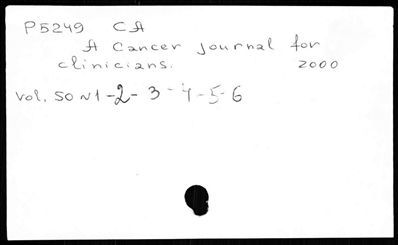 P5249 CA
A Cancer journal for
clinicians. 2000
vol. 50 N1-2-3-4-5-6